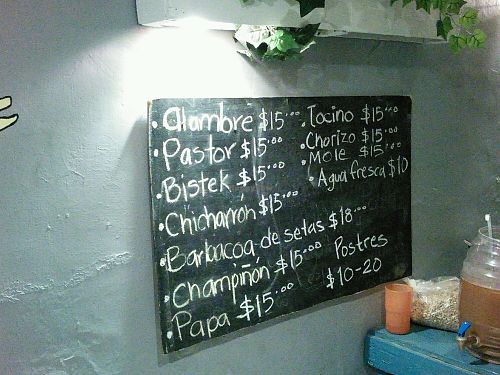 • Alambre $15.⁰⁰
• Pastor $15.⁰⁰
• Bistek $15.⁰⁰
• Chicharrón $15.⁰⁰
• Barbacoa de setas $18.⁰⁰
• Champiñón $15.⁰⁰
• Papa $15.⁰⁰
• Tocino $15.⁰⁰
• Chorizo $15.⁰⁰
• Mole $15.⁰⁰
• Agua fresca $10
Postres
$10-20